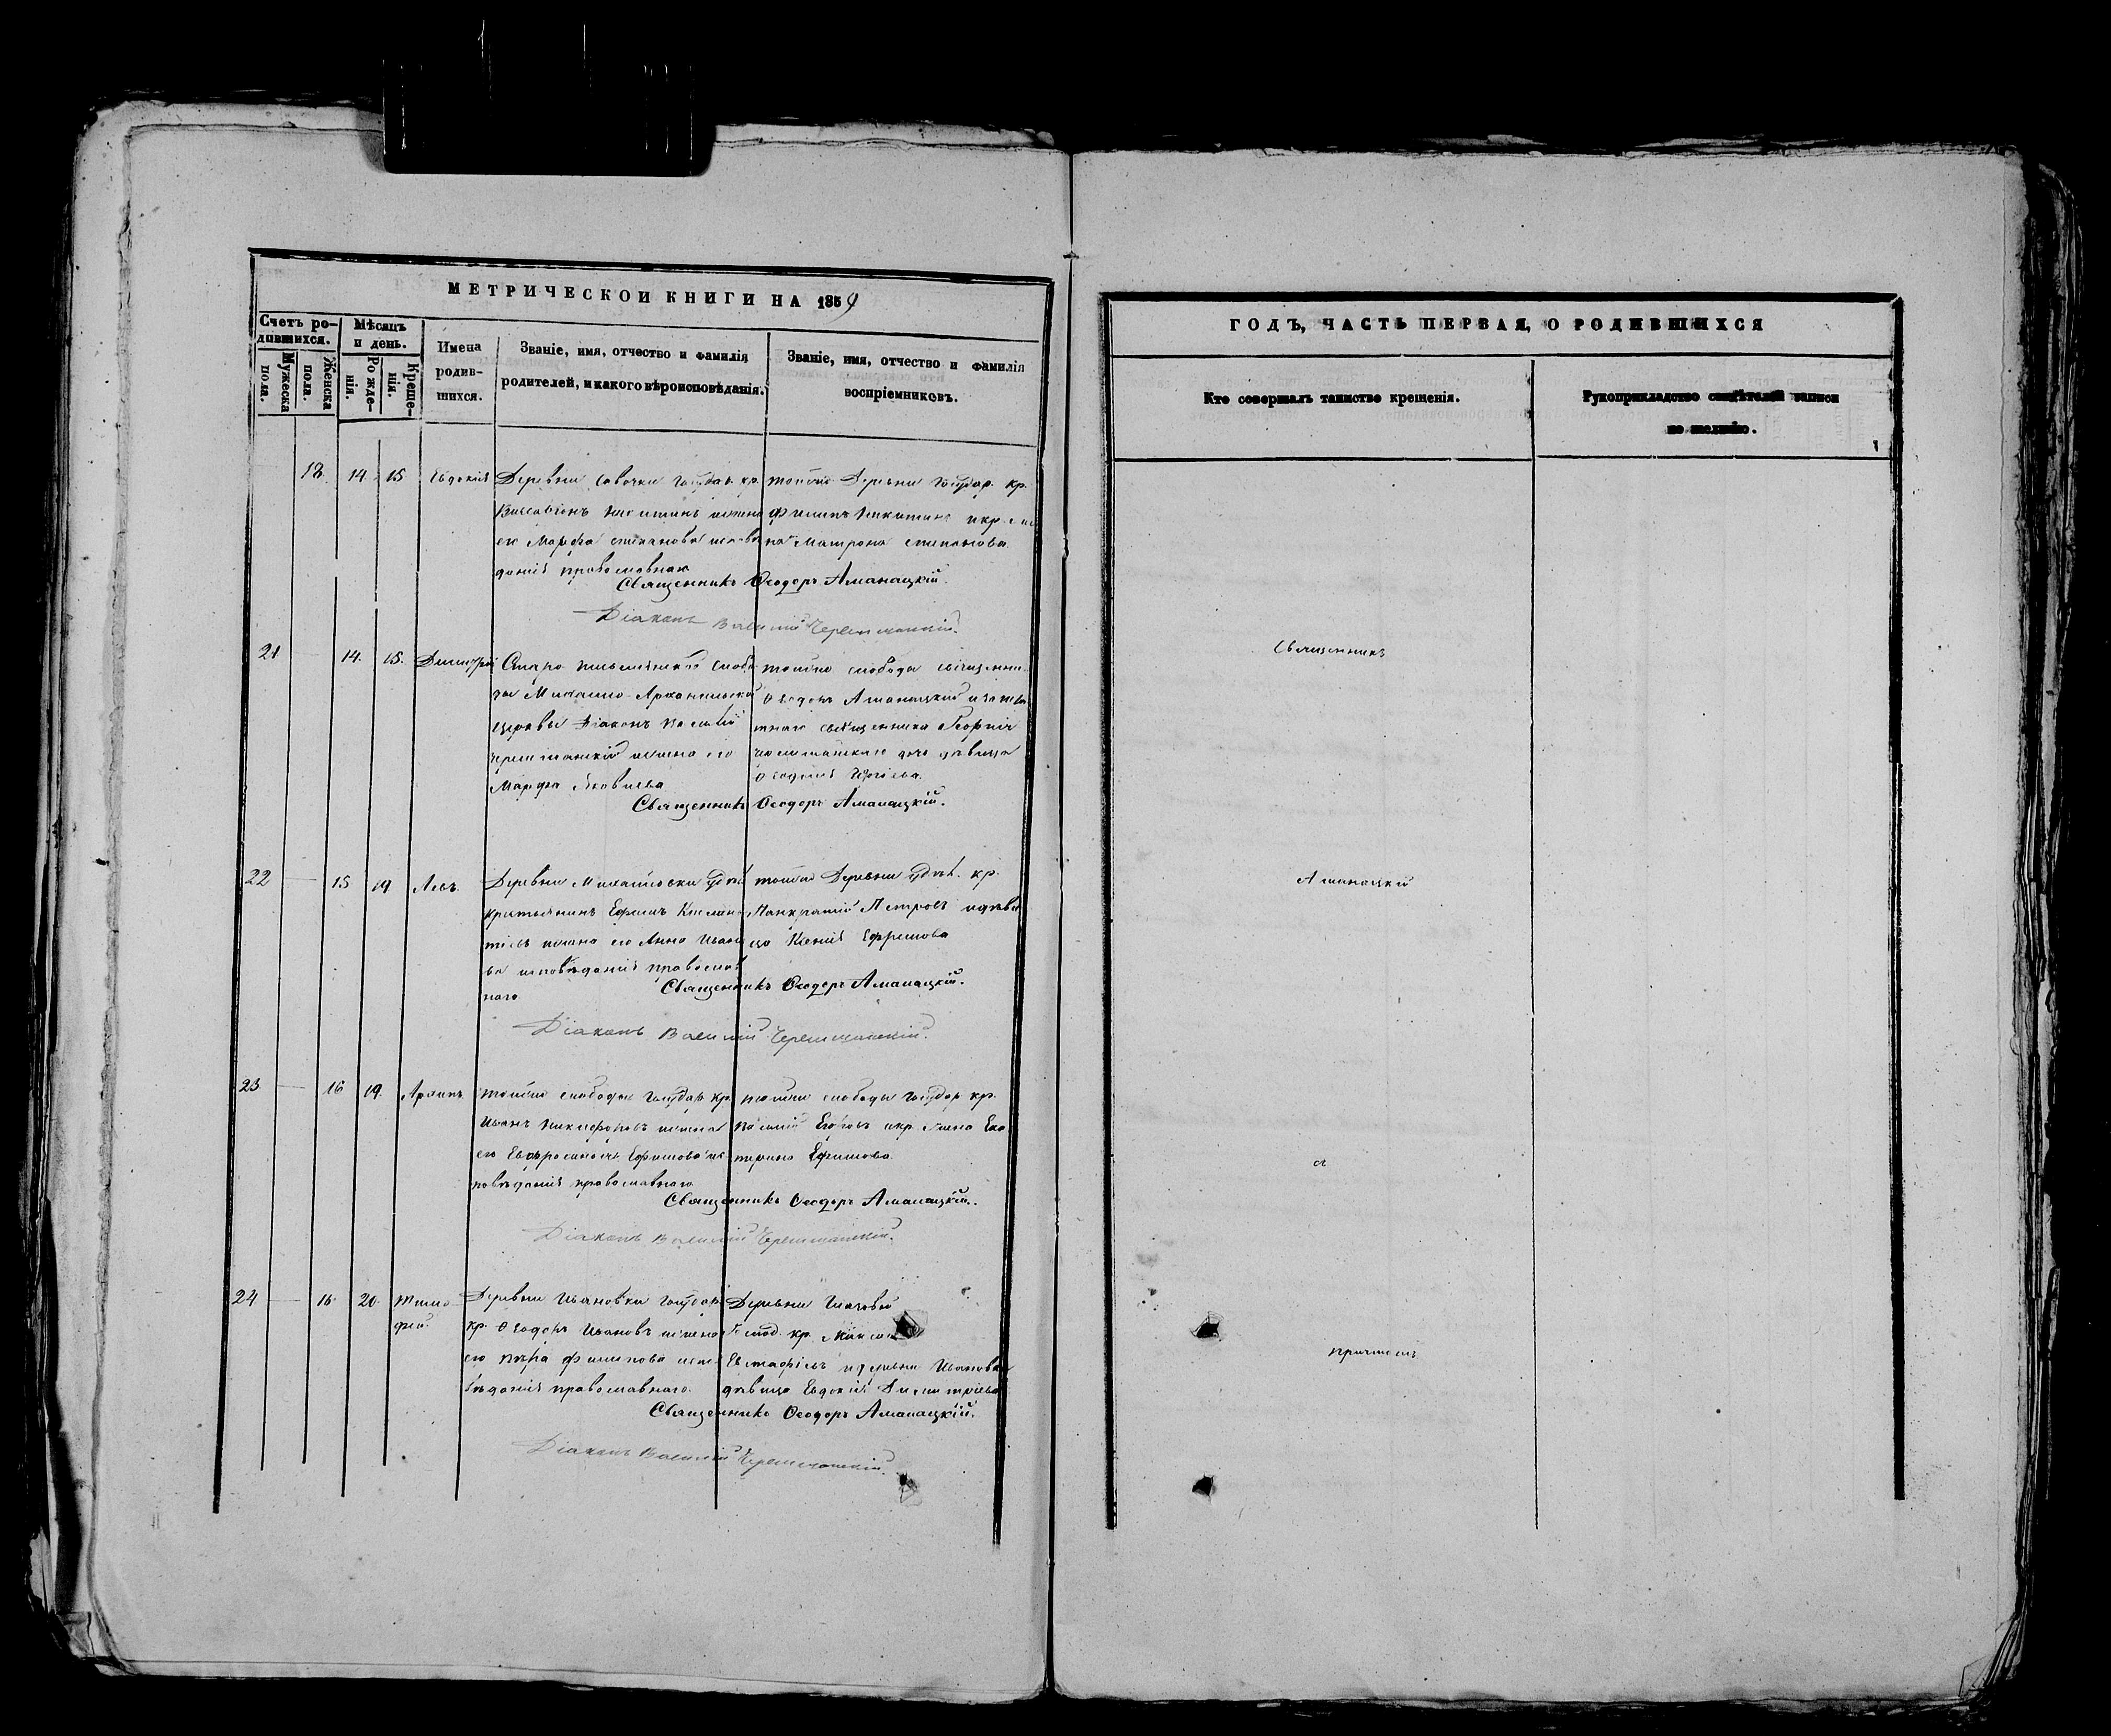 МЕТРИЧЕСКОЙ КНИГИ НА 1854
Счетъ ро-
дившихся.
Мужеска
пола.
Женска
пола.
Мѣсяцъ
и день.
Рожде-
нія.
Креще-
нія.
Имена
родив-
шихся.
Званіе, имя, отчество и фамилія
родителей, и какого вѣроисповѣданія.
Званіе, имя, отчество и фамилія
воспріемниковъ.
18. 14. 15 Евдокія
Деревни Савочки Государ. кр.
его Марфа Степанова исповѣ
данія православнаго
тойже Деревни Государ. кр.
Филипъ Никитинъ и кр.
на Матрона Степанова
Священникъ Ѳеодоръ Аманацкій.
Діаконъ Василій Черемшанскій.
21 14. 15. Димитрій
слобо
ды Михаило-Архангельской
церкви Діаконъ Василій
Черемшанскій и жена его
Марфа Яковлева
тойже слободы священни
Ѳеодоръ Аманацкій
священника Георгія
дочь дѣвица
Священникъ Ѳеодоръ Аманацкій.
22 15 19 Левъ.
Деревни Михайловки удѣл
крестьянинъ Ефимъ
жена его Анна Ивано
ва исповѣданія православ
наго
тойже Деревни удѣл. кр.
Панкратій Петровъ и дѣви
ца Ксенія Ефремова
Священникъ Ѳеодоръ Аманацкій.
Діаконъ Василій Черемшанскій.
23 16 19. Архипъ
тойже слободы Государ. кр.
Иванъ Никифоровъ и жена
его Евфросинья Ефимова ис
повѣданія православнаго
тойже слободы Государ. кр.
Василій Егоровъ и кр. жена Ека
терина Ефимова
Священникъ Ѳеодоръ Аманацкій.
Діаконъ Василій Черемшанскій.
24 16 20. Тимо
фей.
Деревни Ивановки Государ.
кр. Ѳеодоръ Ивановъ и жена
его Вѣра Филипова испо
вѣданія православнаго.
Деревни
кр.
Евстафіевъ и деревни Ивановки
дѣвица Евдокія Димитріева
Священникъ Ѳеодоръ Аманацкій.
Діаконъ Василій Черемшанскій.
ГОДЪ, ЧАСТЬ ПЕРВАЯ, О РОДИВШИХСЯ
Кто совершалъ таинство крещенія.
Рукоприкладство свидѣтелей записи
по желанію.
Священникъ
Аманацкій
съ
причтомъ